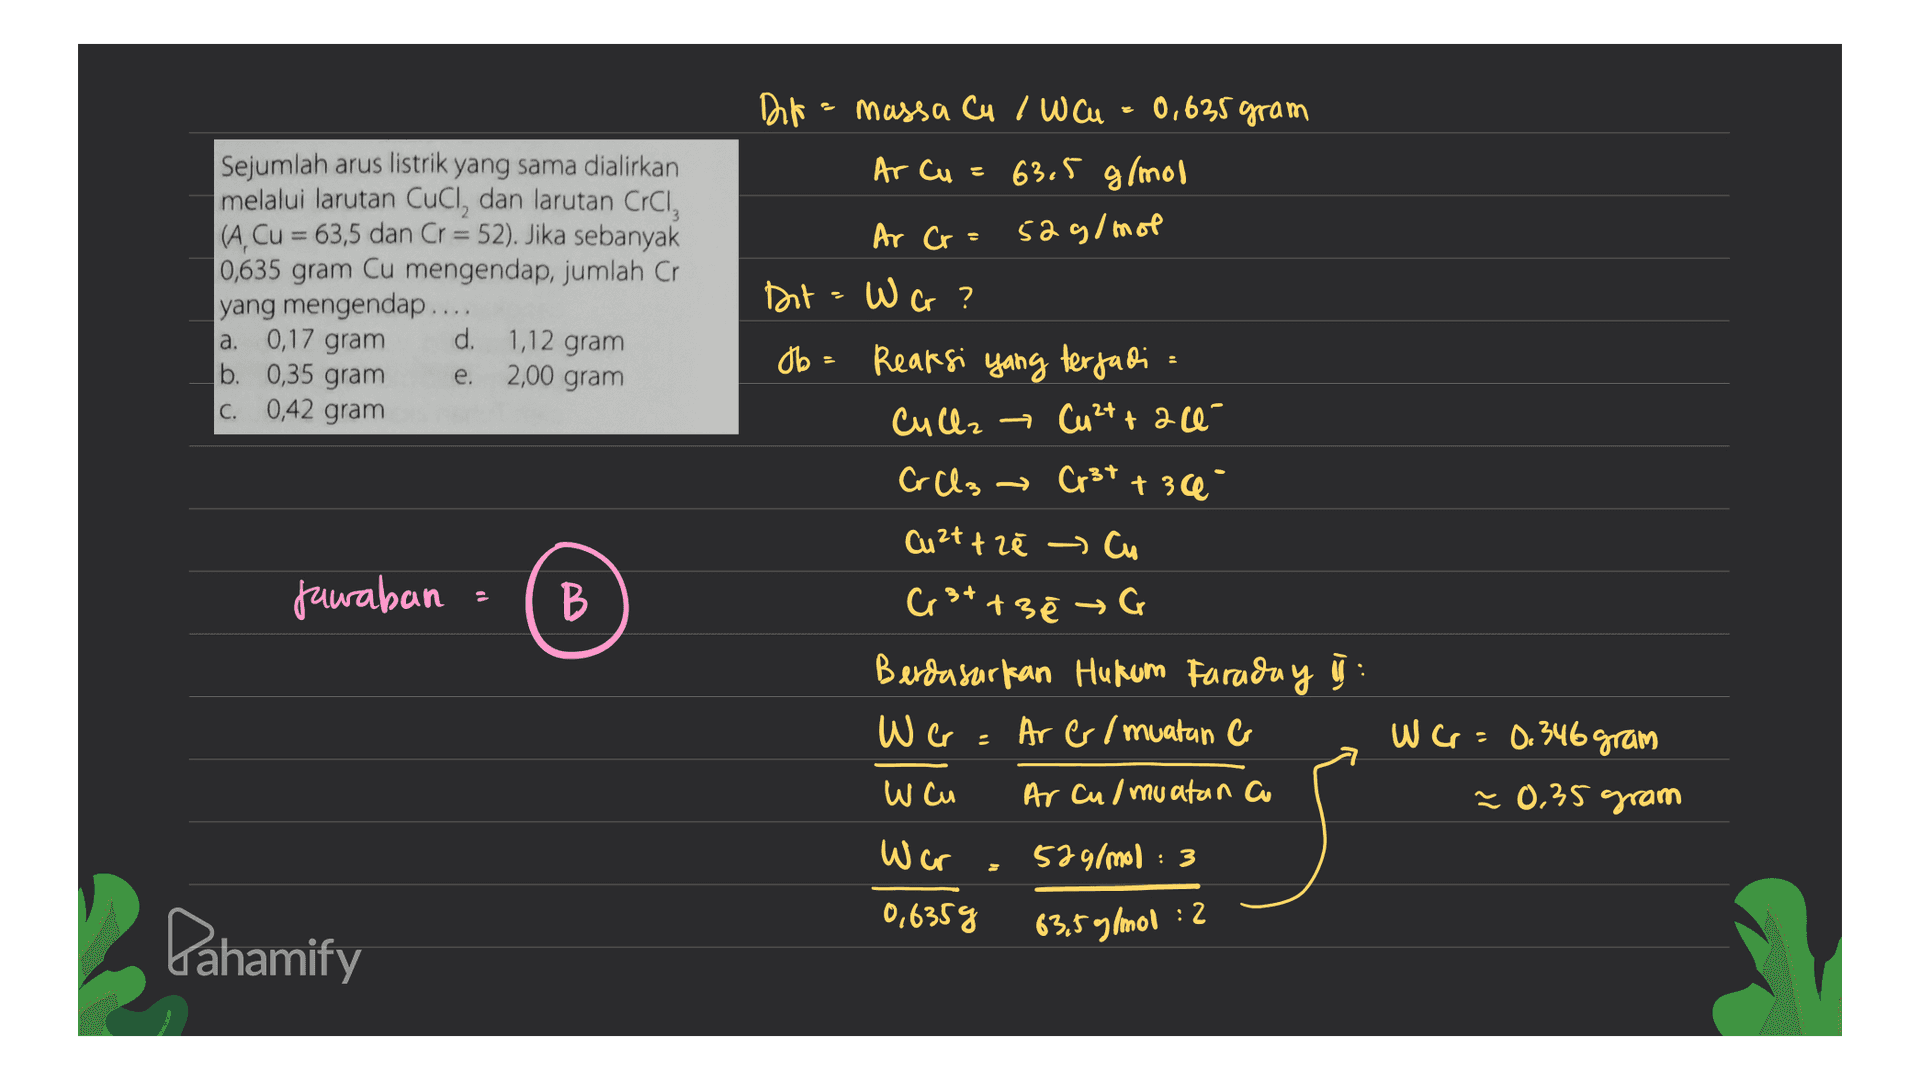 Sejumlah arus listrik yang sama dialirkan
melalui larutan CuCl₂ dan larutan CrCl₃
(Aᵣ Cu = 63,5 dan Cr = 52). Jika sebanyak
0,635 gram Cu mengendap, jumlah Cr
yang mengendap ....
a. 0,17 gram d. 1,12 gram
b. 0,35 gram e. 2,00 gram
c. 0,42 gram
Jawaban = B
Dik = massa Cu / W Cu = 0,635 gram
Ar Cu = 63,5 g/mol
Ar Cr = 52 g/mol
Dit = W Cr ?
Jb = Reaksi yang terjadi =
CuCl₂ → Cu²⁺ + 2Cl⁻
CrCl₃ → Cr³⁺ + 3Cl⁻
Cu²⁺ + 2ē → Cu
Cr³⁺ + 3ē → Cr
Berdasarkan Hukum Faraday II :
W Cr = Ar Cr / muatan Cr
W Cu Ar Cu / muatan Cu
W Cr = 52 g/mol : 3
0,635 g 63,5 g/mol : 2
W Cr = 0.346 gram
≈ 0,35 gram
Pahamify